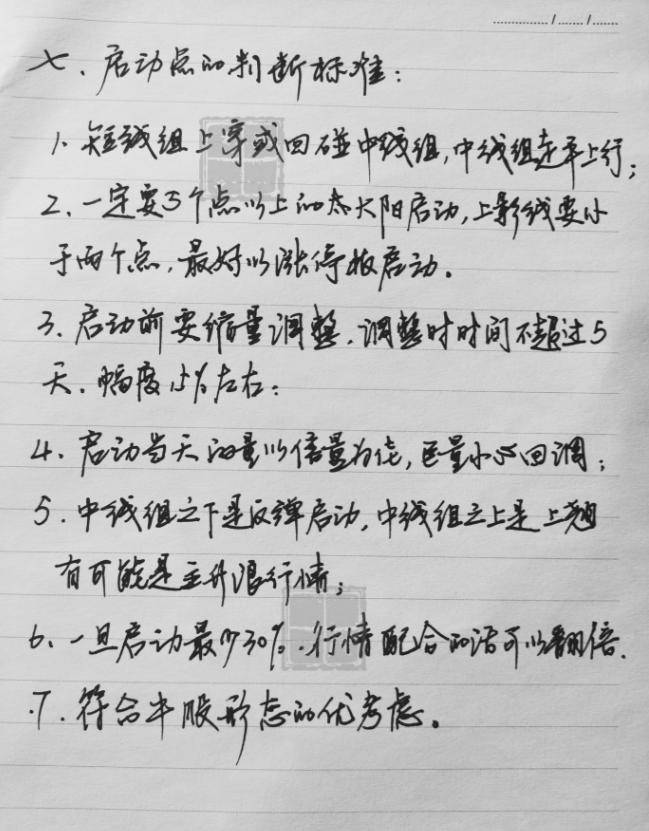 七、启动点的判断标准：
1、短线组上穿或回碰中线组，中线组走平上行；
2、一定要5个点以上的大阳启动，上影线要小
于两个点，最好以涨停板启动。
3、启动前要缩量调整，调整时时间不超过5
天、幅度15%左右；
4、启动当天的量以倍量为佳，巨量小心回调；
5、中线组之下是反弹启动，中线组之上是上翘
有可能是主升浪行情；
6、一旦启动最少30%、行情配合的话可以翻倍.
7、符合牛股形态的优考虑。